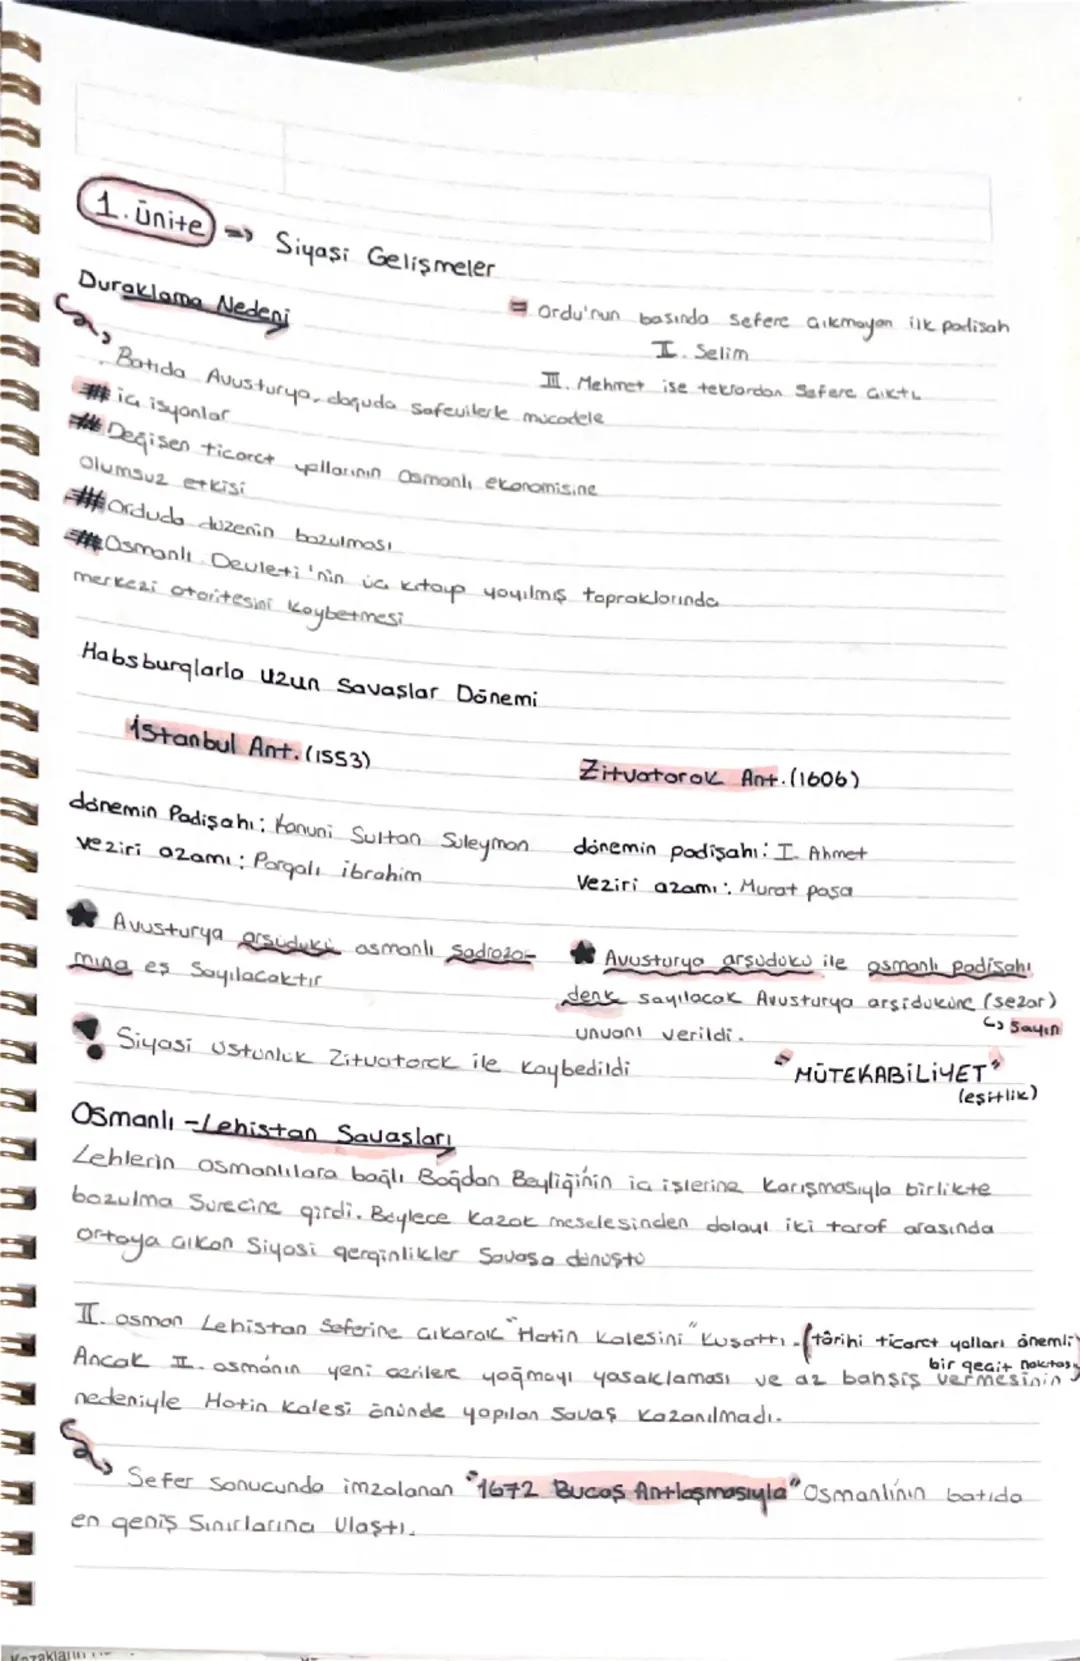 1. ünite => Siyasi Gelişmeler
Duraklama Nedeni
= Ordu'nun basında sefere çıkmayan ilk padisah
II. Selim
III. Mehmet ise tekrardan Sefere Çıktı
Batıda Avusturya, doguda safevilerle mücadele
# iç isyonlar
# Değisen ticaret yollarının Osmanlı ekonomisine
Olumsuz etkisi
# Orduda düzenin bozulması
# Osmanlı Devleti'nin üç kıtaya yayılmış topraklarında
merkezi otoritesini kaybetmesi
Habsburglarla Uzun Savaşlar Dönemi
İstanbul Ant. (1553)
Zitvatorok Ant. (1606)
dönemin Padişahı: Kanuni Sultan Süleyman
veziri azamı: Pargalı ibrahim
dönemin padişahı: I. Ahmet
Veziri azamı: Murat paşa
★ Avusturya arşidükü osmanlı sadraza-
mına eş Sayılacaktır
★ Avusturya arşüdükü ile osmanlı padişahı
denk sayılacak Avusturya arşidüküne (sezar)
↳ Sayın
unvanı verildi.
! Siyasi üstünlük Zitvatorck ile kaybedildi
"MÜTEKABİLİYET"
(eşitlik)
Osmanlı - Lehistan Savaşları
Lehlerin osmanlılara bağlı Boğdan Beyliğinin iç işlerine karışmasıyla birlikte
bozulma Surecine girdi. Böylece kazak meselesinden dolayı iki taraf arasında
ortaya çıkan Siyasi gerginlikler Savaşa dönüştü
II. osman Lehistan Seferine çıkarak "Hotin kalesini" kuşattı. (tarihi ticaret yolları önemli
bir geçit noktası
Ancak II. osmanın yeni çerilere yağmayı yasaklaması ve az bahşiş vermesinin
nedeniyle Hotin kalesi önünde yapılan Savaş kazanılmadı.
Sefer sonucunda imzalanan "1672 Bucaş Antlaşmasıyla" Osmanlı'nın batıda
en geniş Sınırlarına Ulaştı.